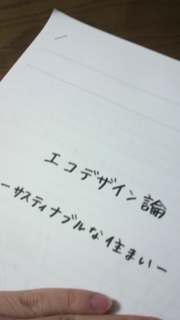 エコデザイン論
ーサスティナブルな住まいー